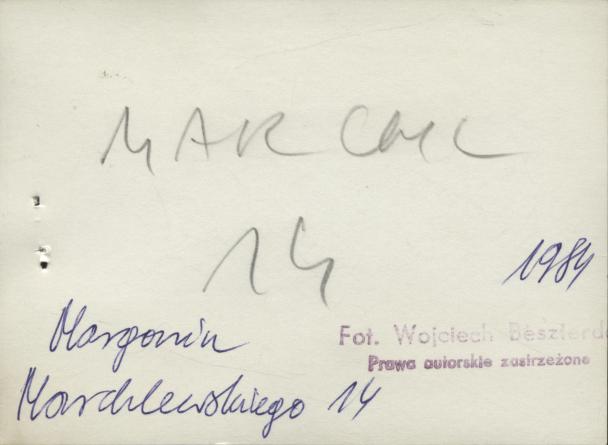 MARCHL
14
1984
Margonin
Fot. Wojciech Beszterda
Prawa autorskie zastrzeżone
Marchlewskiego 14